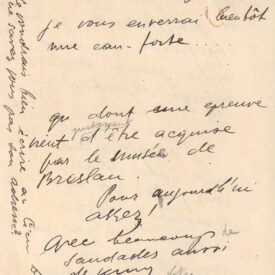 je vous enverrai bientôt
une eau-forte...
dont une épreuve
vient d'être acquise
par le musée de
Breslau.
Pour aujourd'hui
assez!
Avec beaucoup de
saudades aussi
de
Je voudrais bien écrire au
ne savez vous pas son adresse?